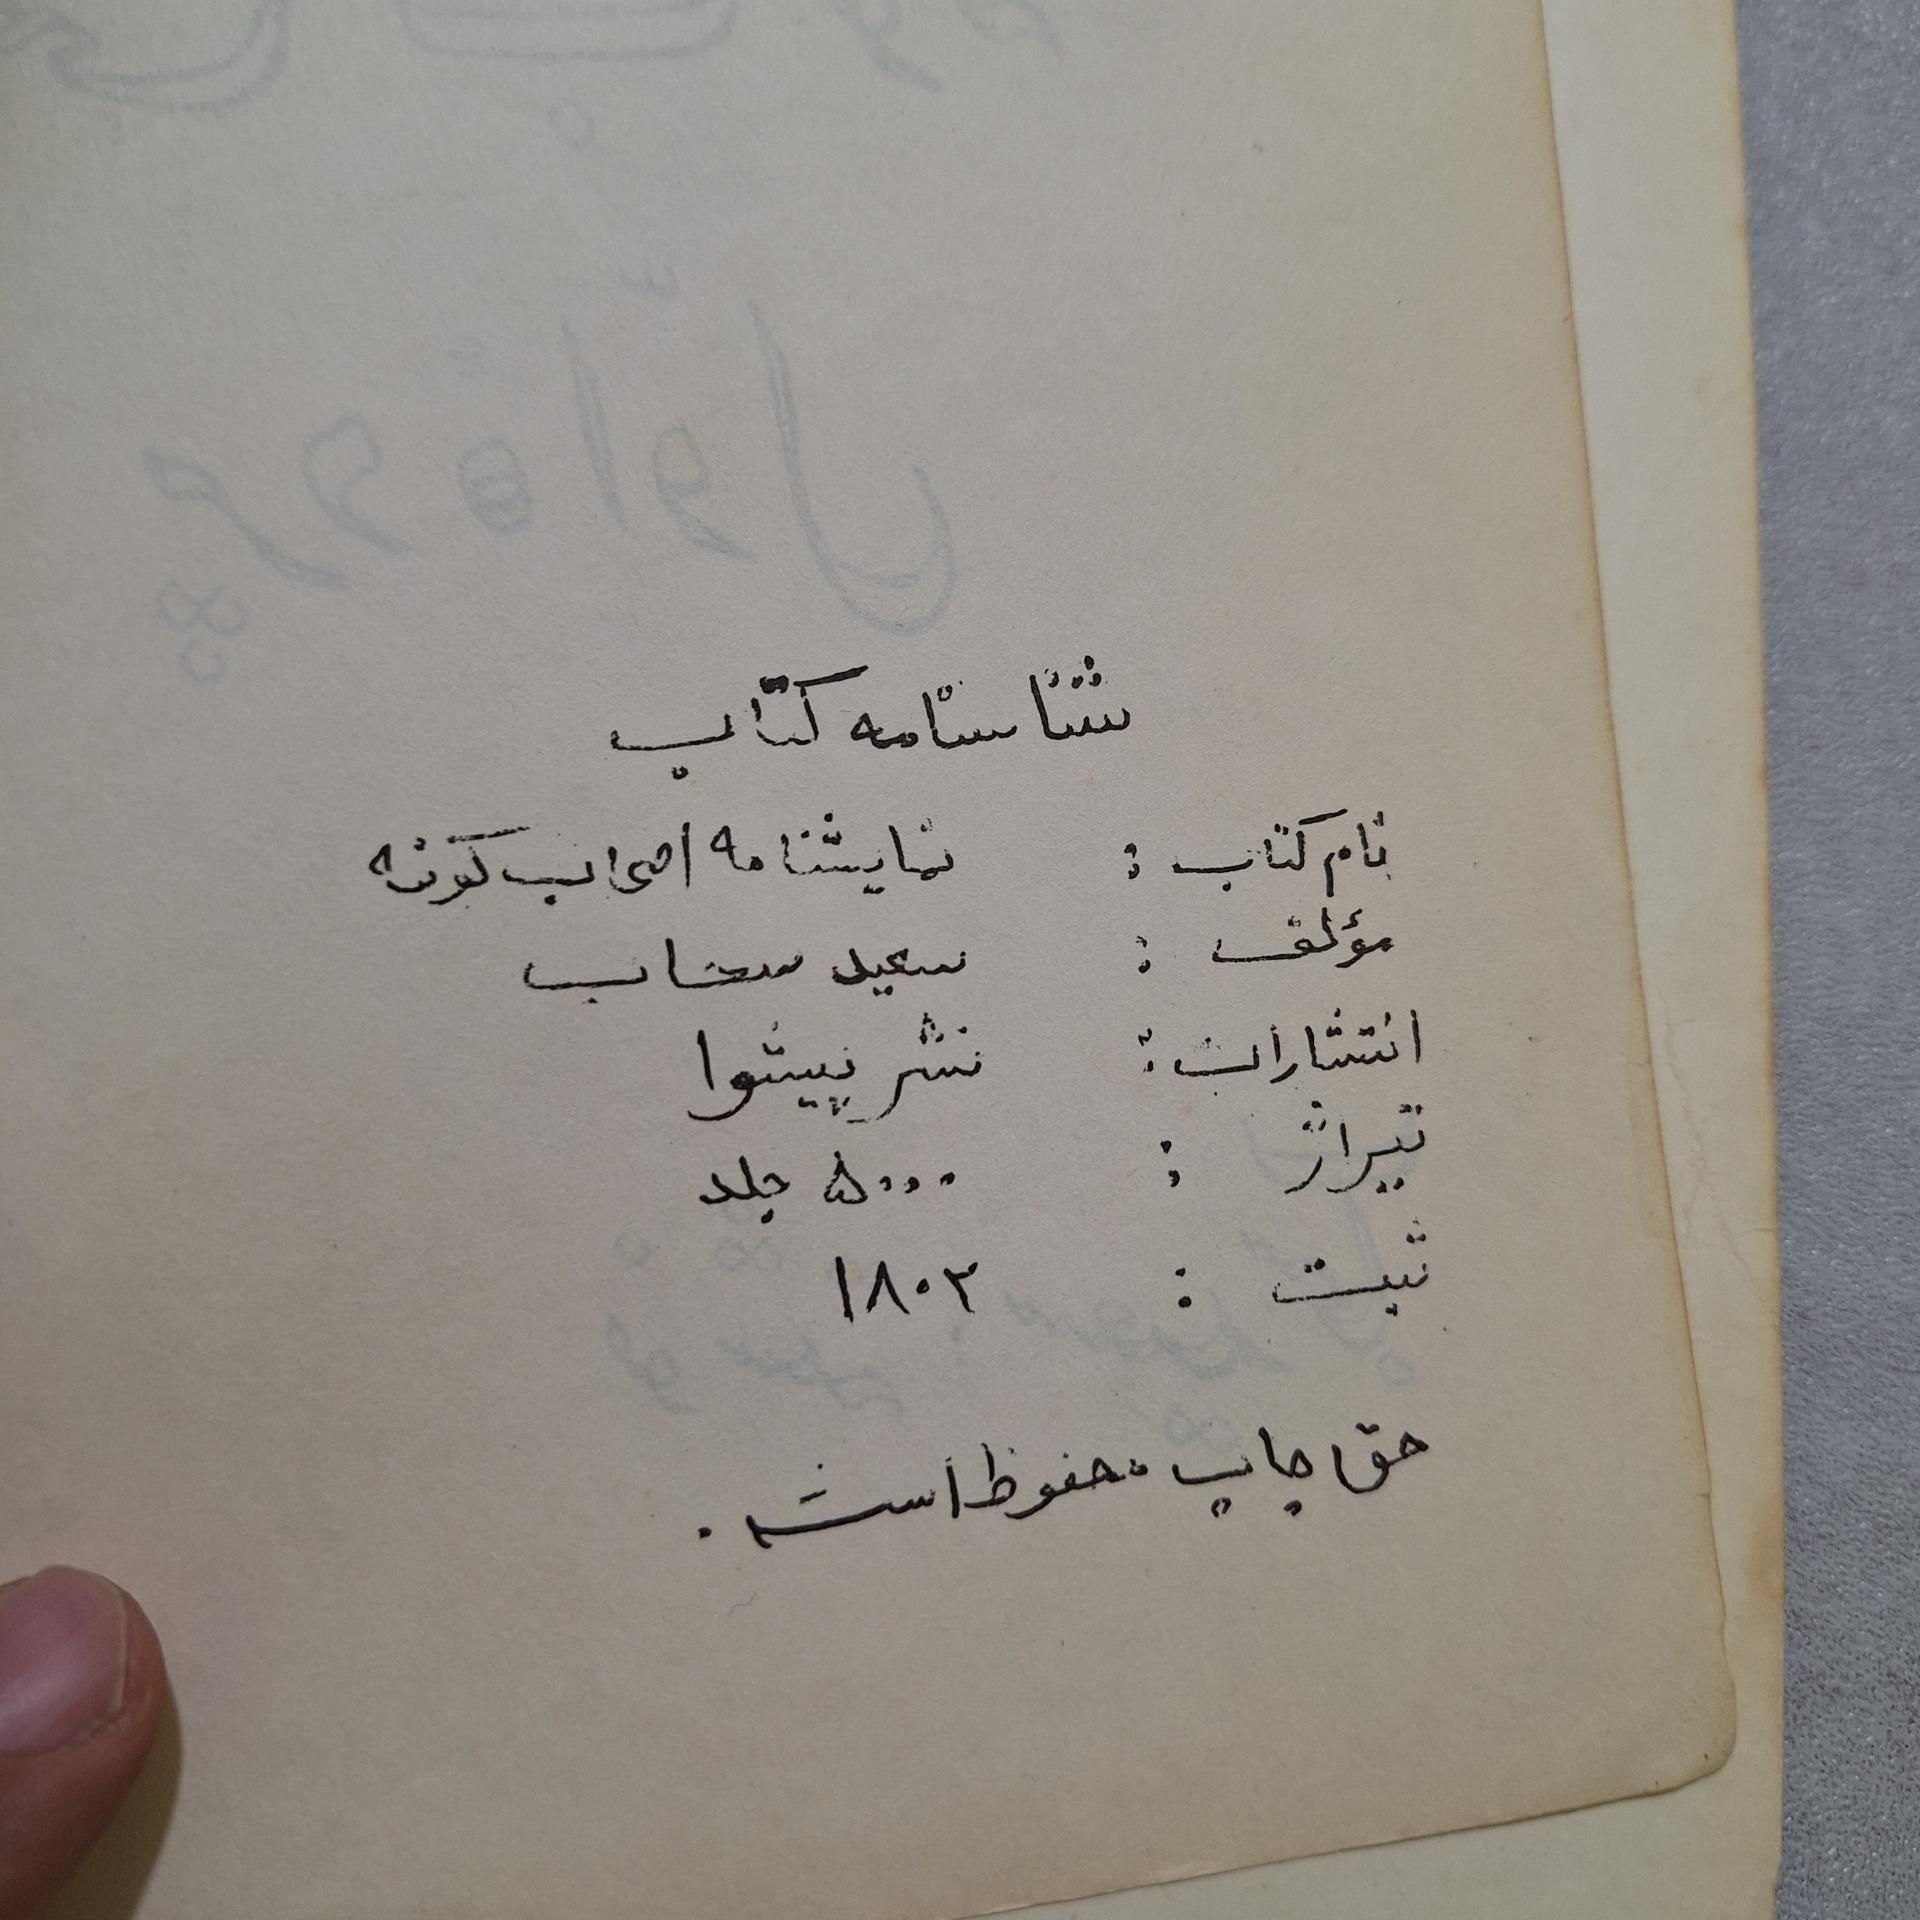 شناسنامه کتاب
نام کتاب : نمایشنامه اصحاب کوته
مؤلف : سعید سخاب
انتشارات : نشر پیشوا
تیراژ : ۵۰۰۰ جلد
ثبت : ۱۸۰۲
حق چاپ محفوظ است.